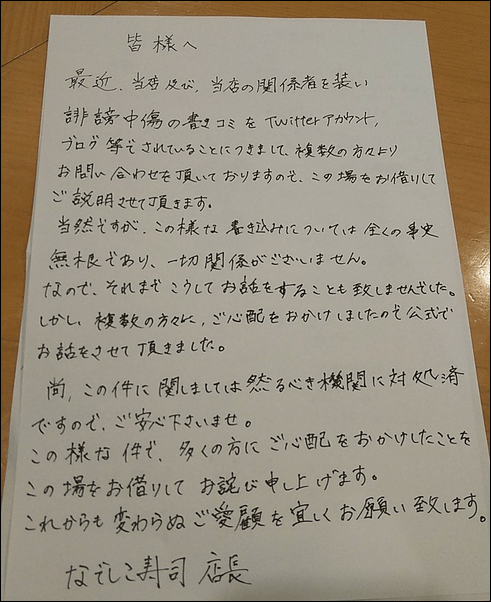 皆様へ
最近、当店及び、当店の関係者を装い
誹謗中傷の書きコミをTwitterアカウント,
ブログ等でされていることにつきまして、複数の方々より
お問い合わせを頂いておりますので、この場をお借りして
ご説明させて頂きます。
当然ですが、この様な書き込みについては全くの事実
無根であり、一切関係がございません。
なので、それまでこうしてお話をすることも致しませんでした。
しかし、複数の方々に、ご心配をおかけしましたので公式で
お話をさせて頂きました。
尚、この件に関しましては然るべき機関に対処済
ですので、ご安心下さいませ。
この様な件で、多くの方にご心配をおかけしたことを
この場をお借りしてお詫び申し上げます。
これからも変わらぬご愛顧を宜しくお願い致します。
なでしこ寿司 店長